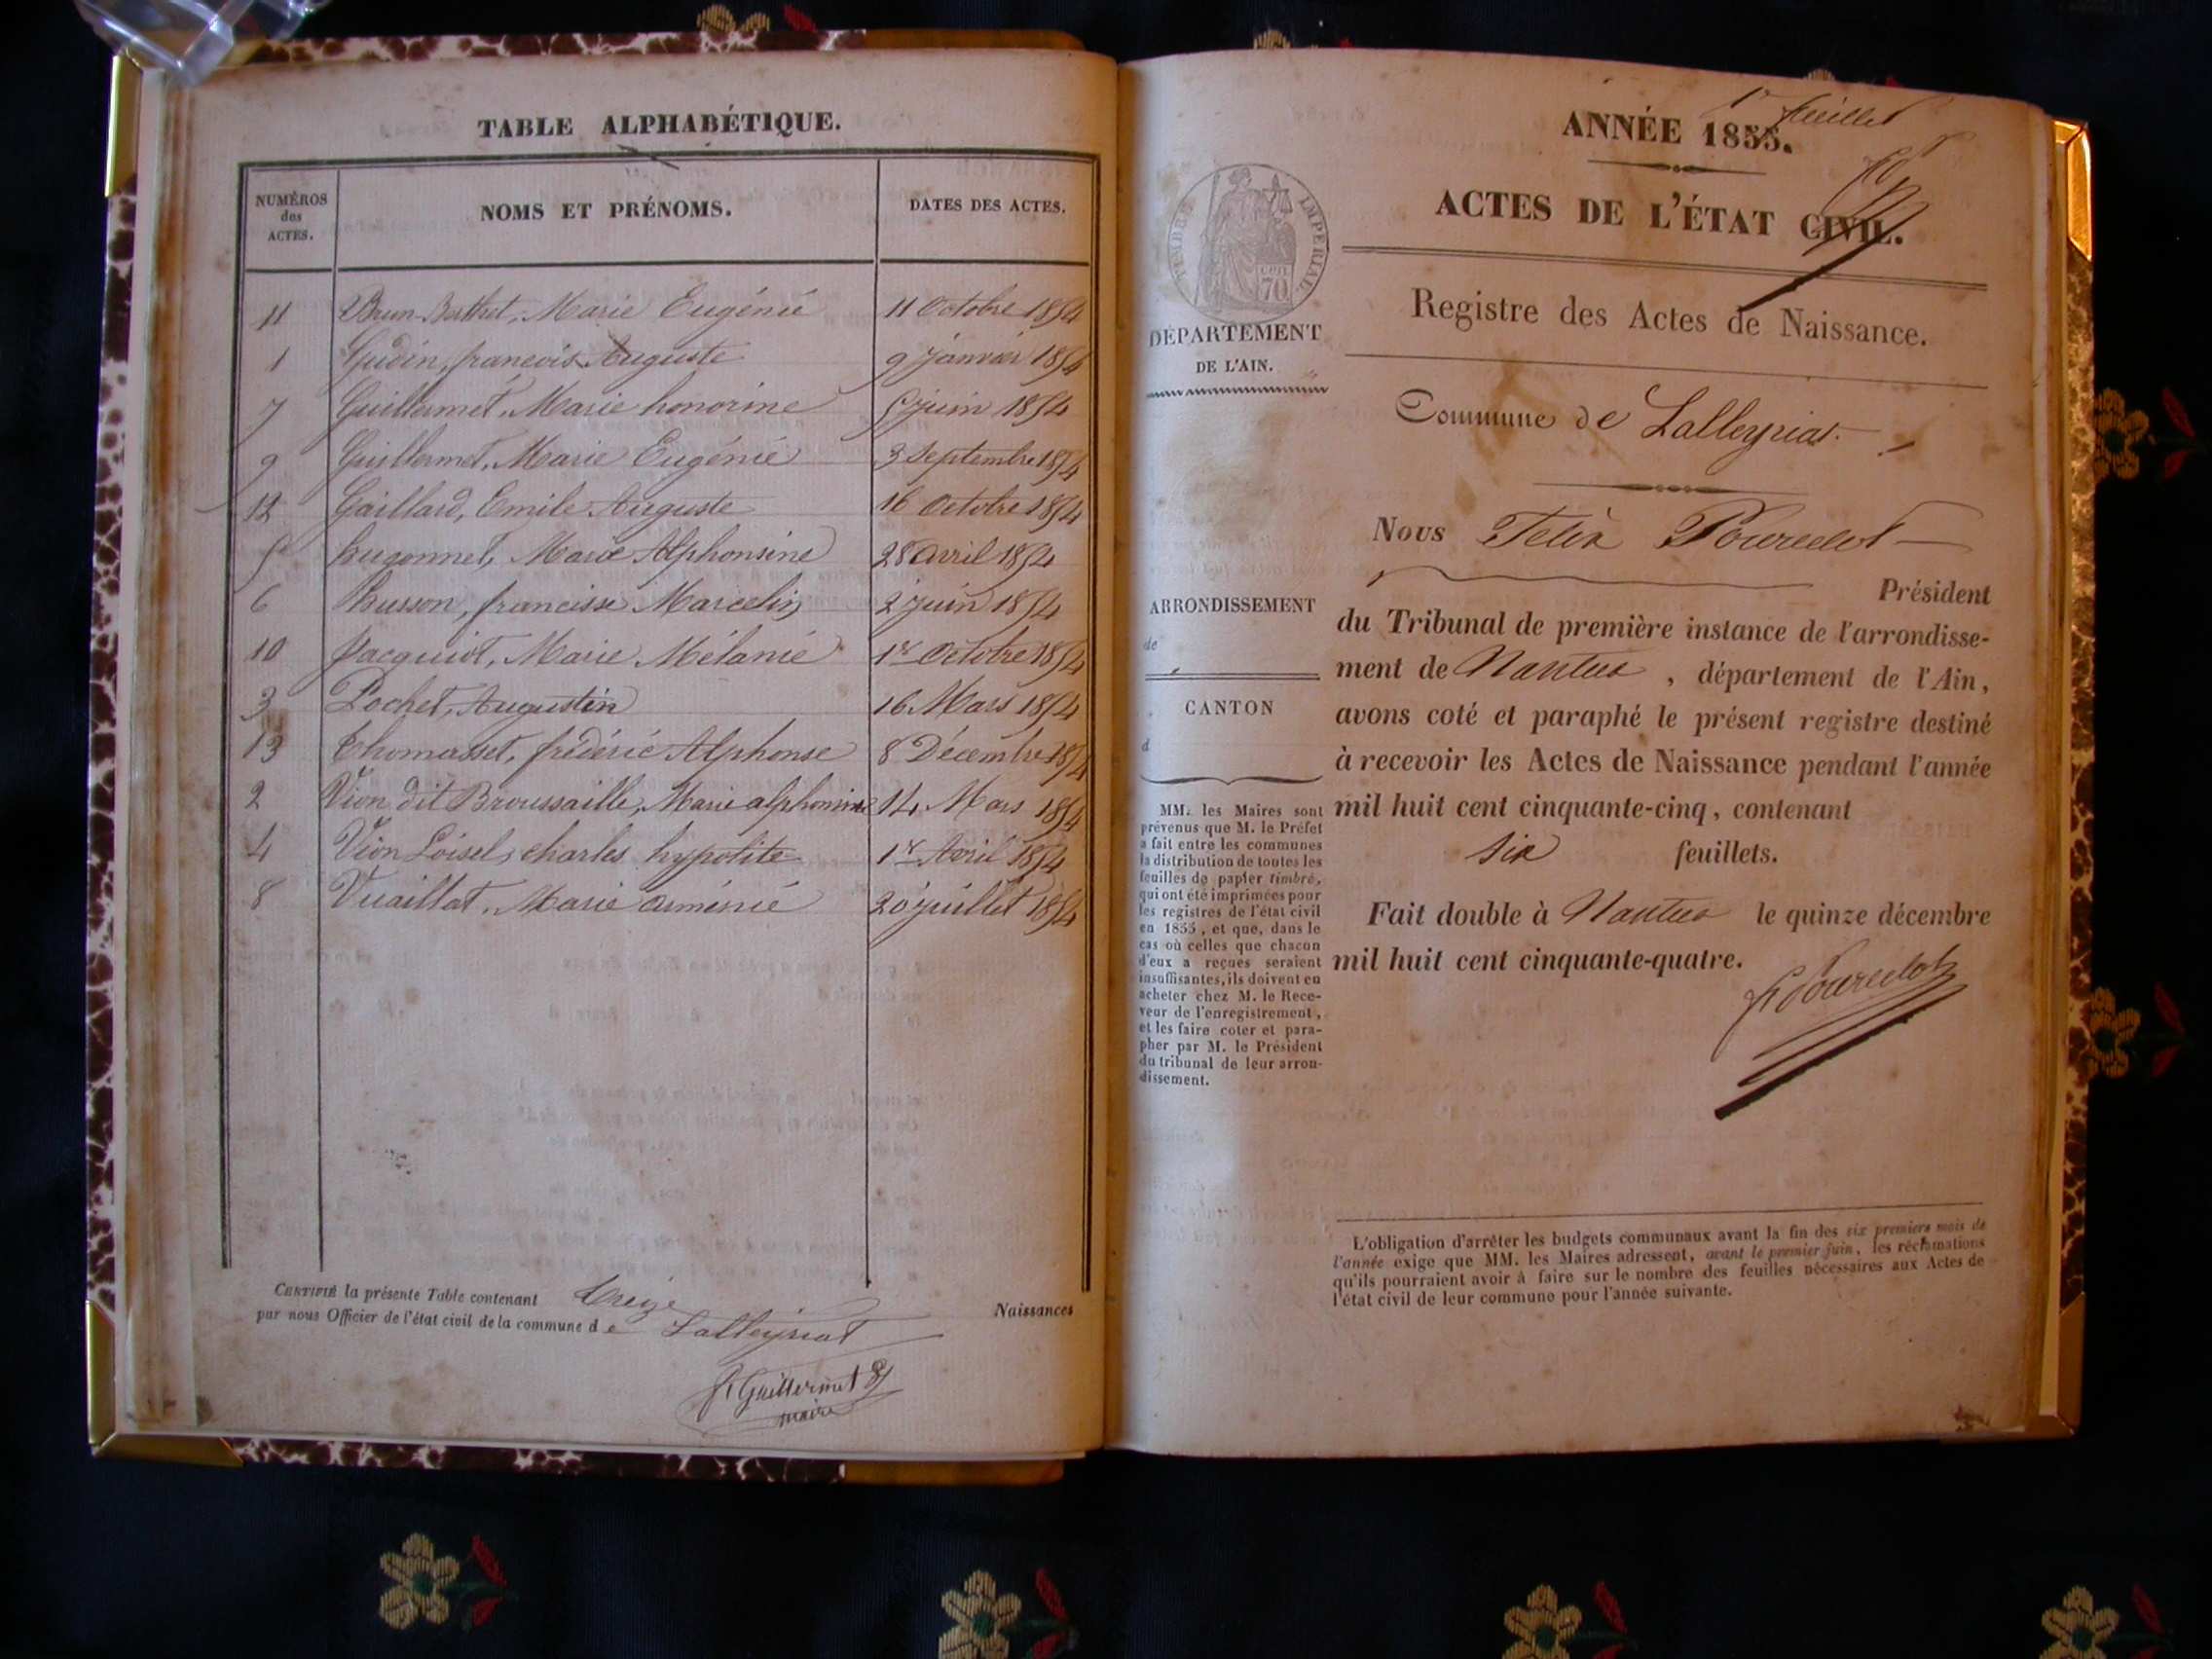 TABLE ALPHABÉTIQUE.
NUMÉROS des ACTES.
NOMS ET PRÉNOMS.
DATES DES ACTES.
11 Brun-Berthet, Marie Eugénie 11 Octobre 1854
1 Gudin, françois Auguste 9 janvier 1854
7 Guillermet, Marie honorine 5 juin 1854
9 Guillermet, Marie Eugénie 3 Septembre 1854
12 Gaillard, Emile Auguste 16 Octobre 1854
5 hugonnet, Marie Alphonsine 28 avril 1854
6 husson, francisse Marcelin 2 juin 1854
10 Jacquiot, Marie Mélanie 1er Octobre 1854
3 Pochet, Augustin 16 Mars 1854
13 thomasset, frédéric Alphonse 8 Décembre 1854
2 Vion dit Broussaille, Marie alphonsine 14 Mars 1854
4 Vion Loisel, charles hypolite 1er Avril 1854
8 Vuaillat, Marie arménie 20 juillet 1854
CERTIFIÉ la présente Table contenant treize Naissances
par nous Officier de l'état civil de la commune de Lalleyriat
Guillermet
maire
1er feuillet
ANNÉE 1855.
ACTES DE L'ÉTAT CIVIL.
Registre des Actes de Naissance.
TIMBRE IMPÉRIAL
70
DÉPARTEMENT
DE L'AIN.
Commune de Lalleyriat
Nous Felix Pourcelot
Président
du Tribunal de première instance de l'arrondisse-
ment de Nantua, département de l'Ain,
avons coté et paraphé le présent registre destiné
à recevoir les Actes de Naissance pendant l'année
mil huit cent cinquante-cinq, contenant
six feuillets.
Fait double à Nantua le quinze décembre
mil huit cent cinquante-quatre.
Pourcelot
ARRONDISSEMENT
de
CANTON
d
MM. les Maires sont
prévenus que M. le Préfet
a fait entre les communes
la distribution de toutes les
feuilles de papier timbré,
qui ont été imprimées pour
les registres de l'état civil
en 1855, et que, dans le
cas où celles que chacun
d'eux a reçues seraient
insuffisantes, ils doivent en
acheter chez M. le Rece-
veur de l'enregistrement,
et les faire coter et para-
pher par M. le Président
du tribunal de leur arron-
dissement.
L'obligation d'arrêter les budgets communaux avant la fin des six premiers mois de
l'année exige que MM. les Maires adressent, avant le premier juin, les réclamations
qu'ils pourraient avoir à faire sur le nombre des feuilles nécessaires aux Actes de
l'état civil de leur commune pour l'année suivante.